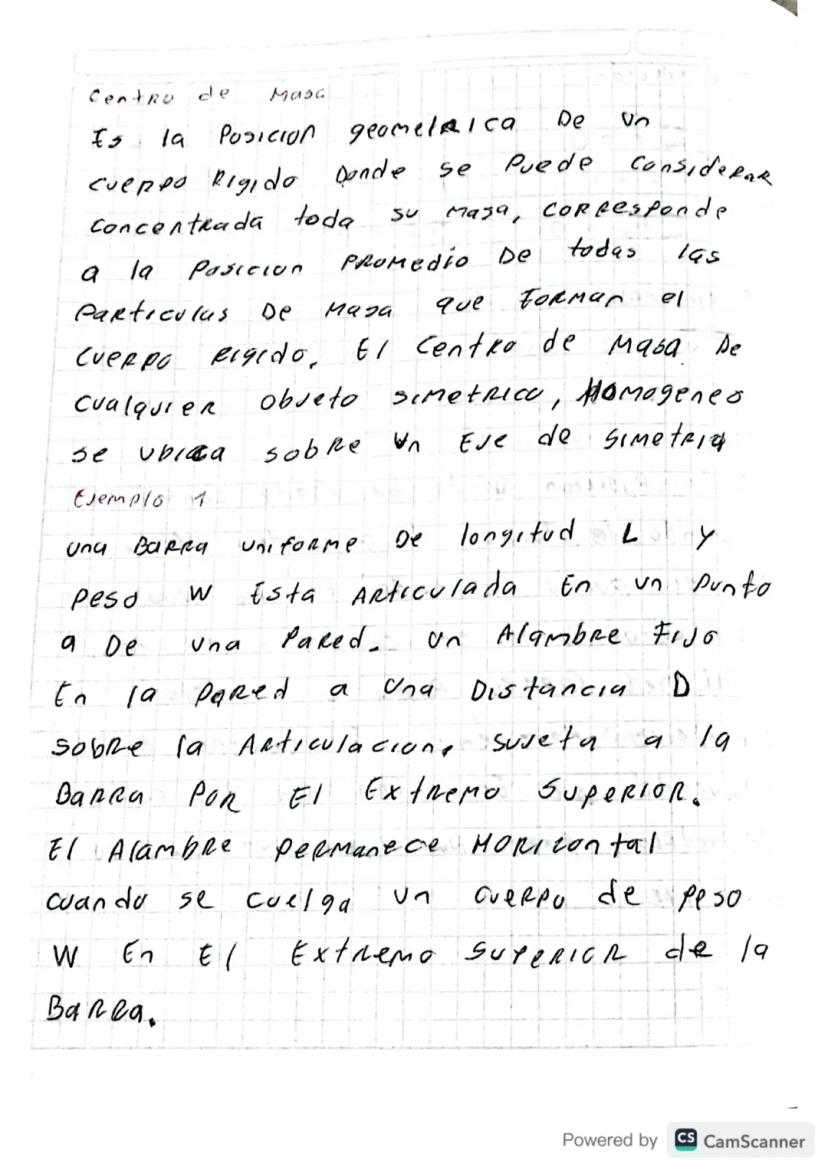 Centro de Masa
Es la Posicion geometrica De un
cuerpo Rigido Donde se Puede considerar
concentrada toda su masa, corresponde
a la Posicion PROMedio De todas las
Particulas De Masa que Forman el
cuerpo rigido. El centro de Masa De
cualquier objeto simetrico, Homogeneo
se ubica sobre un Eje de simetria
Ejemplo 1
una Barra uniforme De longitud L y
Peso W Esta Articulada En un Punto
a De una Pared. un Alambre Fijo
En la Pared a una Distancia D
sobre la Articulacion, sujeta a la
Barra Por El Extremo Superior.
El Alambre permanece Horizontal
cuando se cuelga un cuerpo de peso
W En El Extremo Superior de la
Barra.
Powered by CS CamScanner